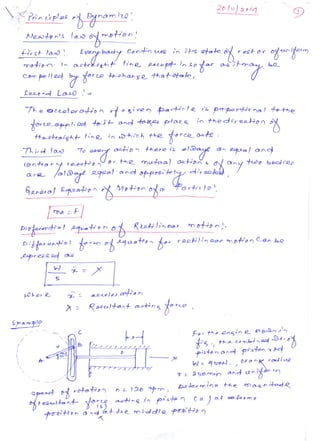 20/10/2009
2
Principles of Dynamics:
Newton's law of motion:
First law: Everybody continues in its state of rest or of uniform
motion in a straight line, except in so far as it may be
compelled by force to change that state.
Second Law:-
The acceleration of a given particle is proportional to the
force applied to it and takes place in the direction of
the straight line in which the force acts.
Third law: To every action there is always an equal and
contrary reaction or the mutual actions of any two bodies
are always equal and oppositely directed.
General Equation of Motion of a Particle:
ma = F
Differential equation of Rectilinear motion:
Differential form of equation for rectilinear motion can be
expressed as
W/g ẍ = X
where ẍ = acceleration
X = Resultant acting force.
Example
For the engine shown in
fig, the combined wt. of
piston and piston rod
W = 450N, crank radius
r = 250mm and uniform
speed of rotation n = 120 rpm. Determine the magnitude
of resultant force acting on piston (a) at extreme
position and at the middle position